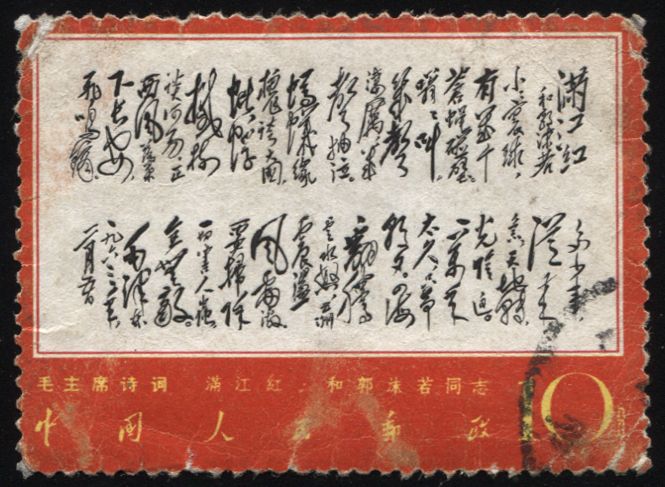 满江红
和郭沫若
小小寰球，
有几个
苍蝇碰壁。
嗡嗡叫，
几声
凄厉几
声抽泣。
蚂蚁缘
槐夸大国
蚍蜉
撼树
谈何易。正
西风落叶
下长安
飞鸣镝。
多少事，
从来
急。天地转，
光阴迫。
一万年
太久，只争
朝夕。四海
翻腾
云水怒，五洲
震荡
风雷激。
要扫除
一切害人虫，
全无敌。
毛泽东
一九六三年
二月五日
毛主席诗词 满江红 和郭沫若同志
中国人民邮政 10分